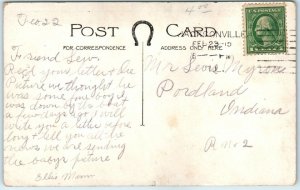 Feb 22
POST CARD
FOR CORRESPONDENCE
ADDRESS ONLY HERE
FEB 23
Friend Levi.
Recd your letter & the
Picture we thought he
was some fine boy. I
was down by it but
a few days ago I will
write you a letter before
long & tell you all the
news we are sending
the babys picture
Ellis Mann
Mr Levi
Portland
Indiana
R no 2